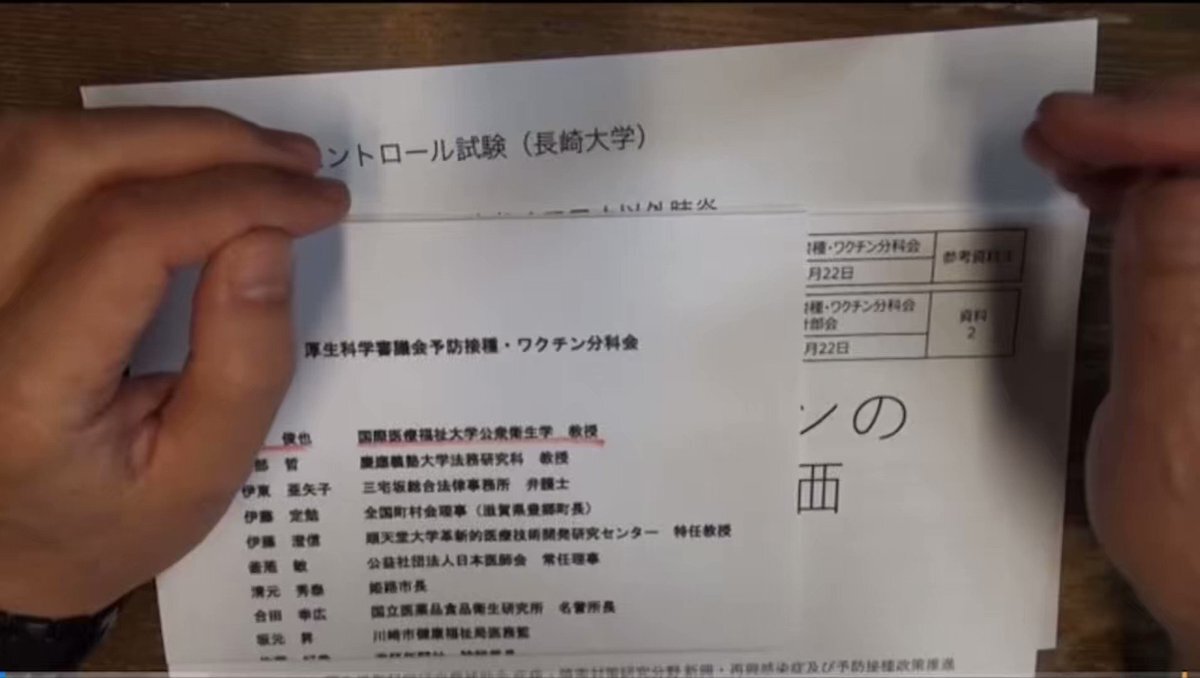 ントロール試験（長崎大学）
以外肺炎
種・ワクチン分科会
月22日
参考資料
種・ワクチン分科会
部会
月22日
資料
2
ンの
画
厚生科学審議会予防接種・ワクチン分科会
俊也 国際医療福祉大学公衆衛生学 教授
部 哲 慶應義塾大学法務研究科 教授
伊東 亜矢子 三宅坂総合法律事務所 弁護士
伊藤 定勉 全国町村会理事（滋賀県豊郷町長）
伊藤 澄信 順天堂大学革新的医療技術開発研究センター 特任教授
釜萢 敏 公益社団法人日本医師会 常任理事
清元 秀泰 姫路市長
合田 幸広 国立医薬品食品衛生研究所 名誉所長
坂元 昇 川崎市健康福祉局医務監
新興・再興感染症及び予防接種政策推進